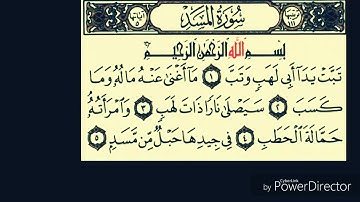 سُورَةُ المَسَد
بِسْمِ اللَّهِ الرَّحْمَٰنِ الرَّحِيمِ
تَبَّتْ يَدَا أَبِي لَهَبٍ وَتَبَّ ١ مَا أَغْنَىٰ عَنْهُ مَالُهُ وَمَا
كَسَبَ ٢ سَيَصْلَىٰ نَارًا ذَاتَ لَهَبٍ ٣ وَامْرَأَتُهُ
حَمَّالَةَ الْحَطَبِ ٤ فِي جِيدِهَا حَبْلٌ مِّن مَّسَدٍ ٥
CyberLink
by PowerDirector